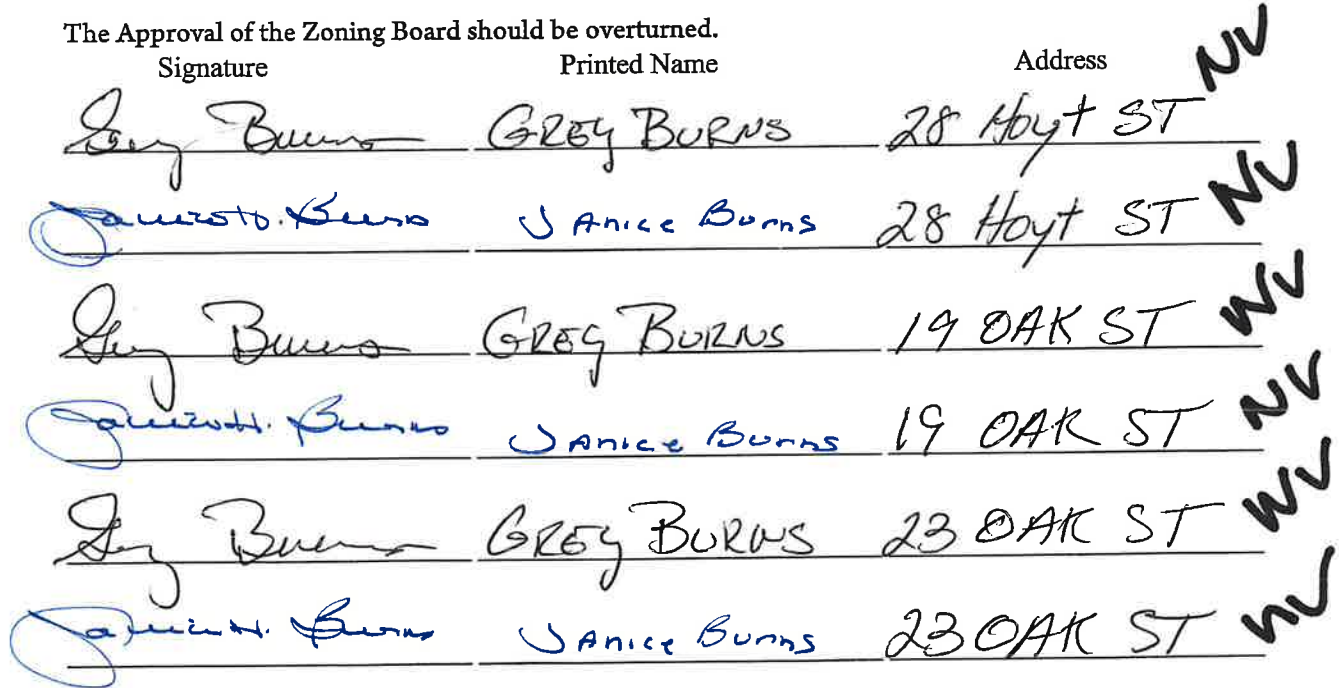 The Approval of the Zoning Board should be overturned.
Signature Printed Name Address
Greg Burns GREG BURNS 28 Hoyt ST NV
Janice H. Burns JANICE BURNS 28 Hoyt ST NV
Greg Burns GREG BURNS 19 OAK ST NV
Janice H. Burns JANICE BURNS 19 OAK ST NV
Greg Burns GREG BURNS 23 OAK ST NV
Janice H. Burns JANICE BURNS 23 OAK ST NV